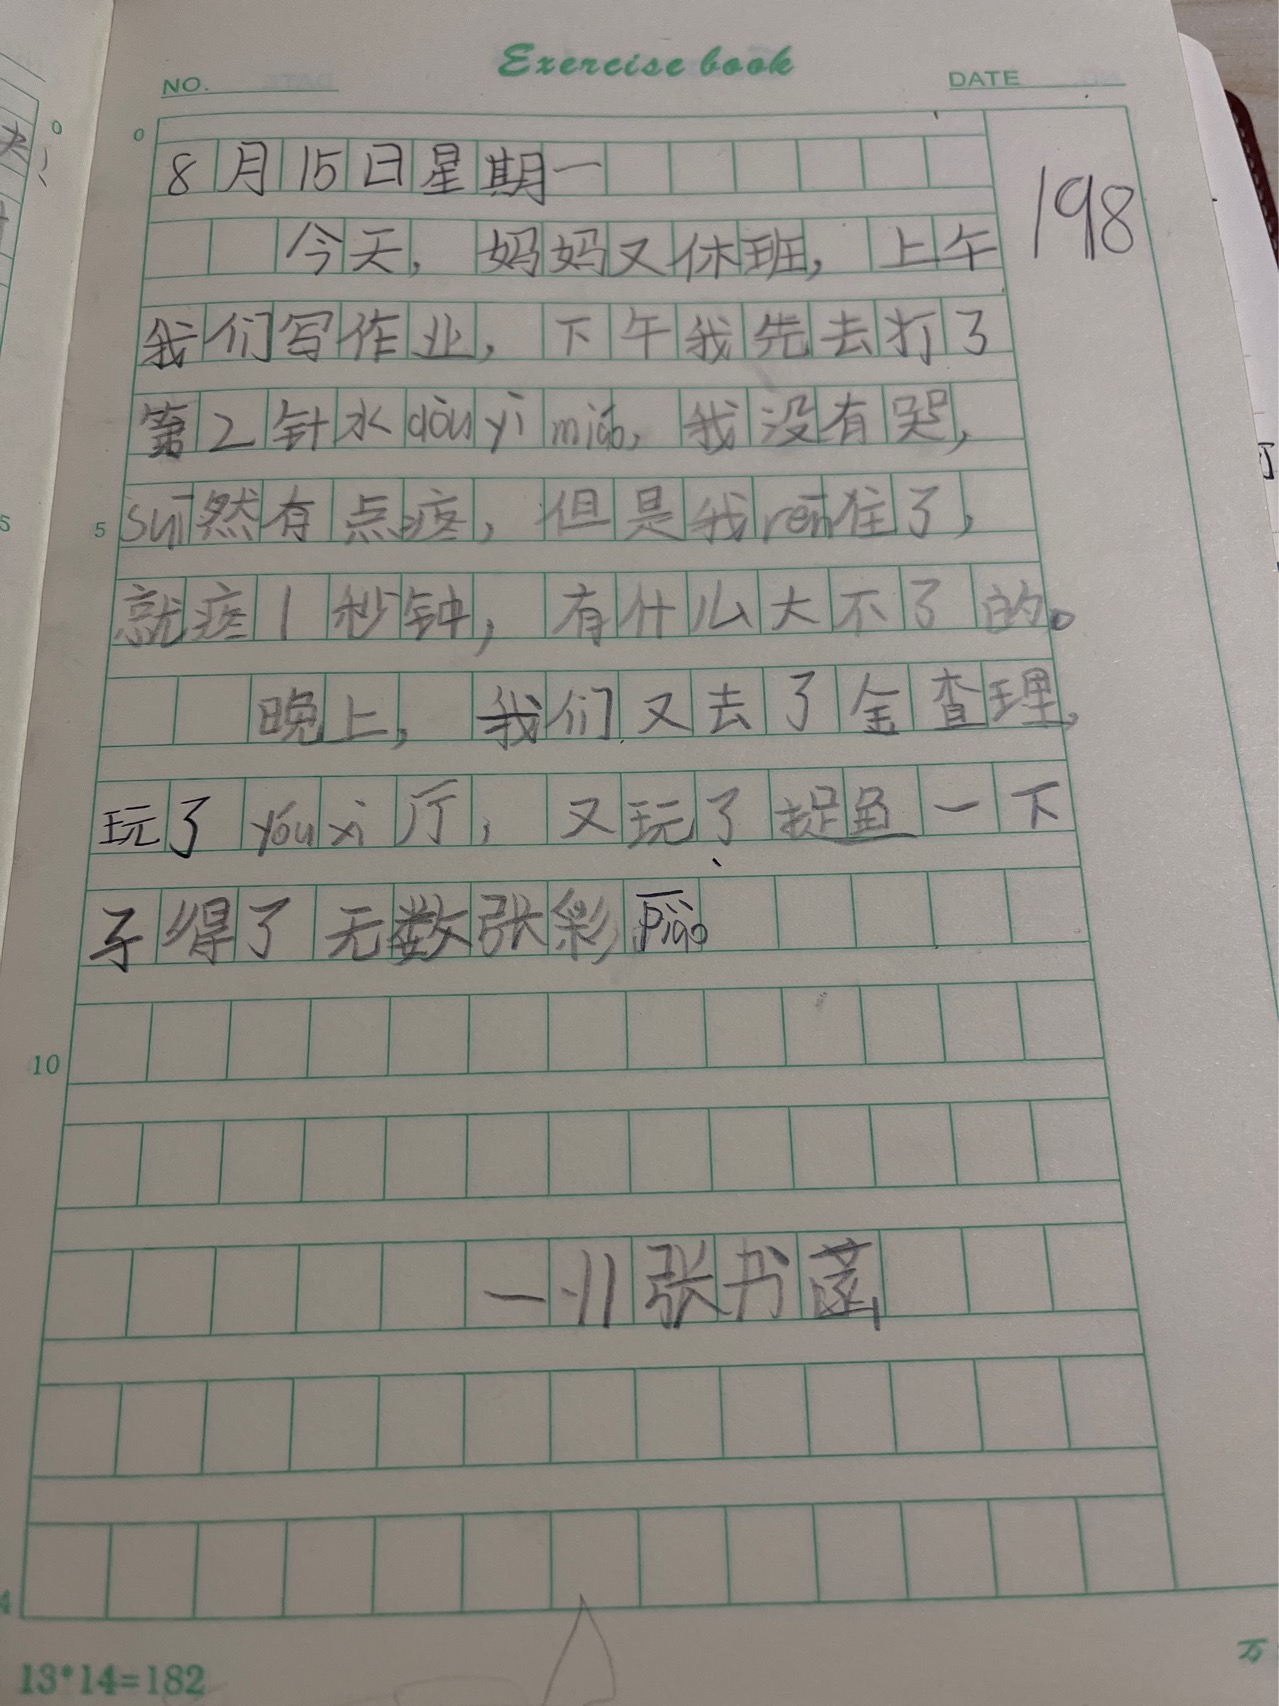 Exercise book
NO.
DATE
0
8月15日星期一
198
今天，妈妈又休班，上午
我们写作业，下午我先去打了
第2针水dòuyìmiáo，我没有哭，
5
suī然有点疼，但是我rěn住了，
就疼1秒钟，有什么大不了的。
晚上，我们又去了金查理，
玩了yóuxì厅，又玩了捉鱼一下
子得了无数张彩piào
10
一·11张书菡
13*14=182